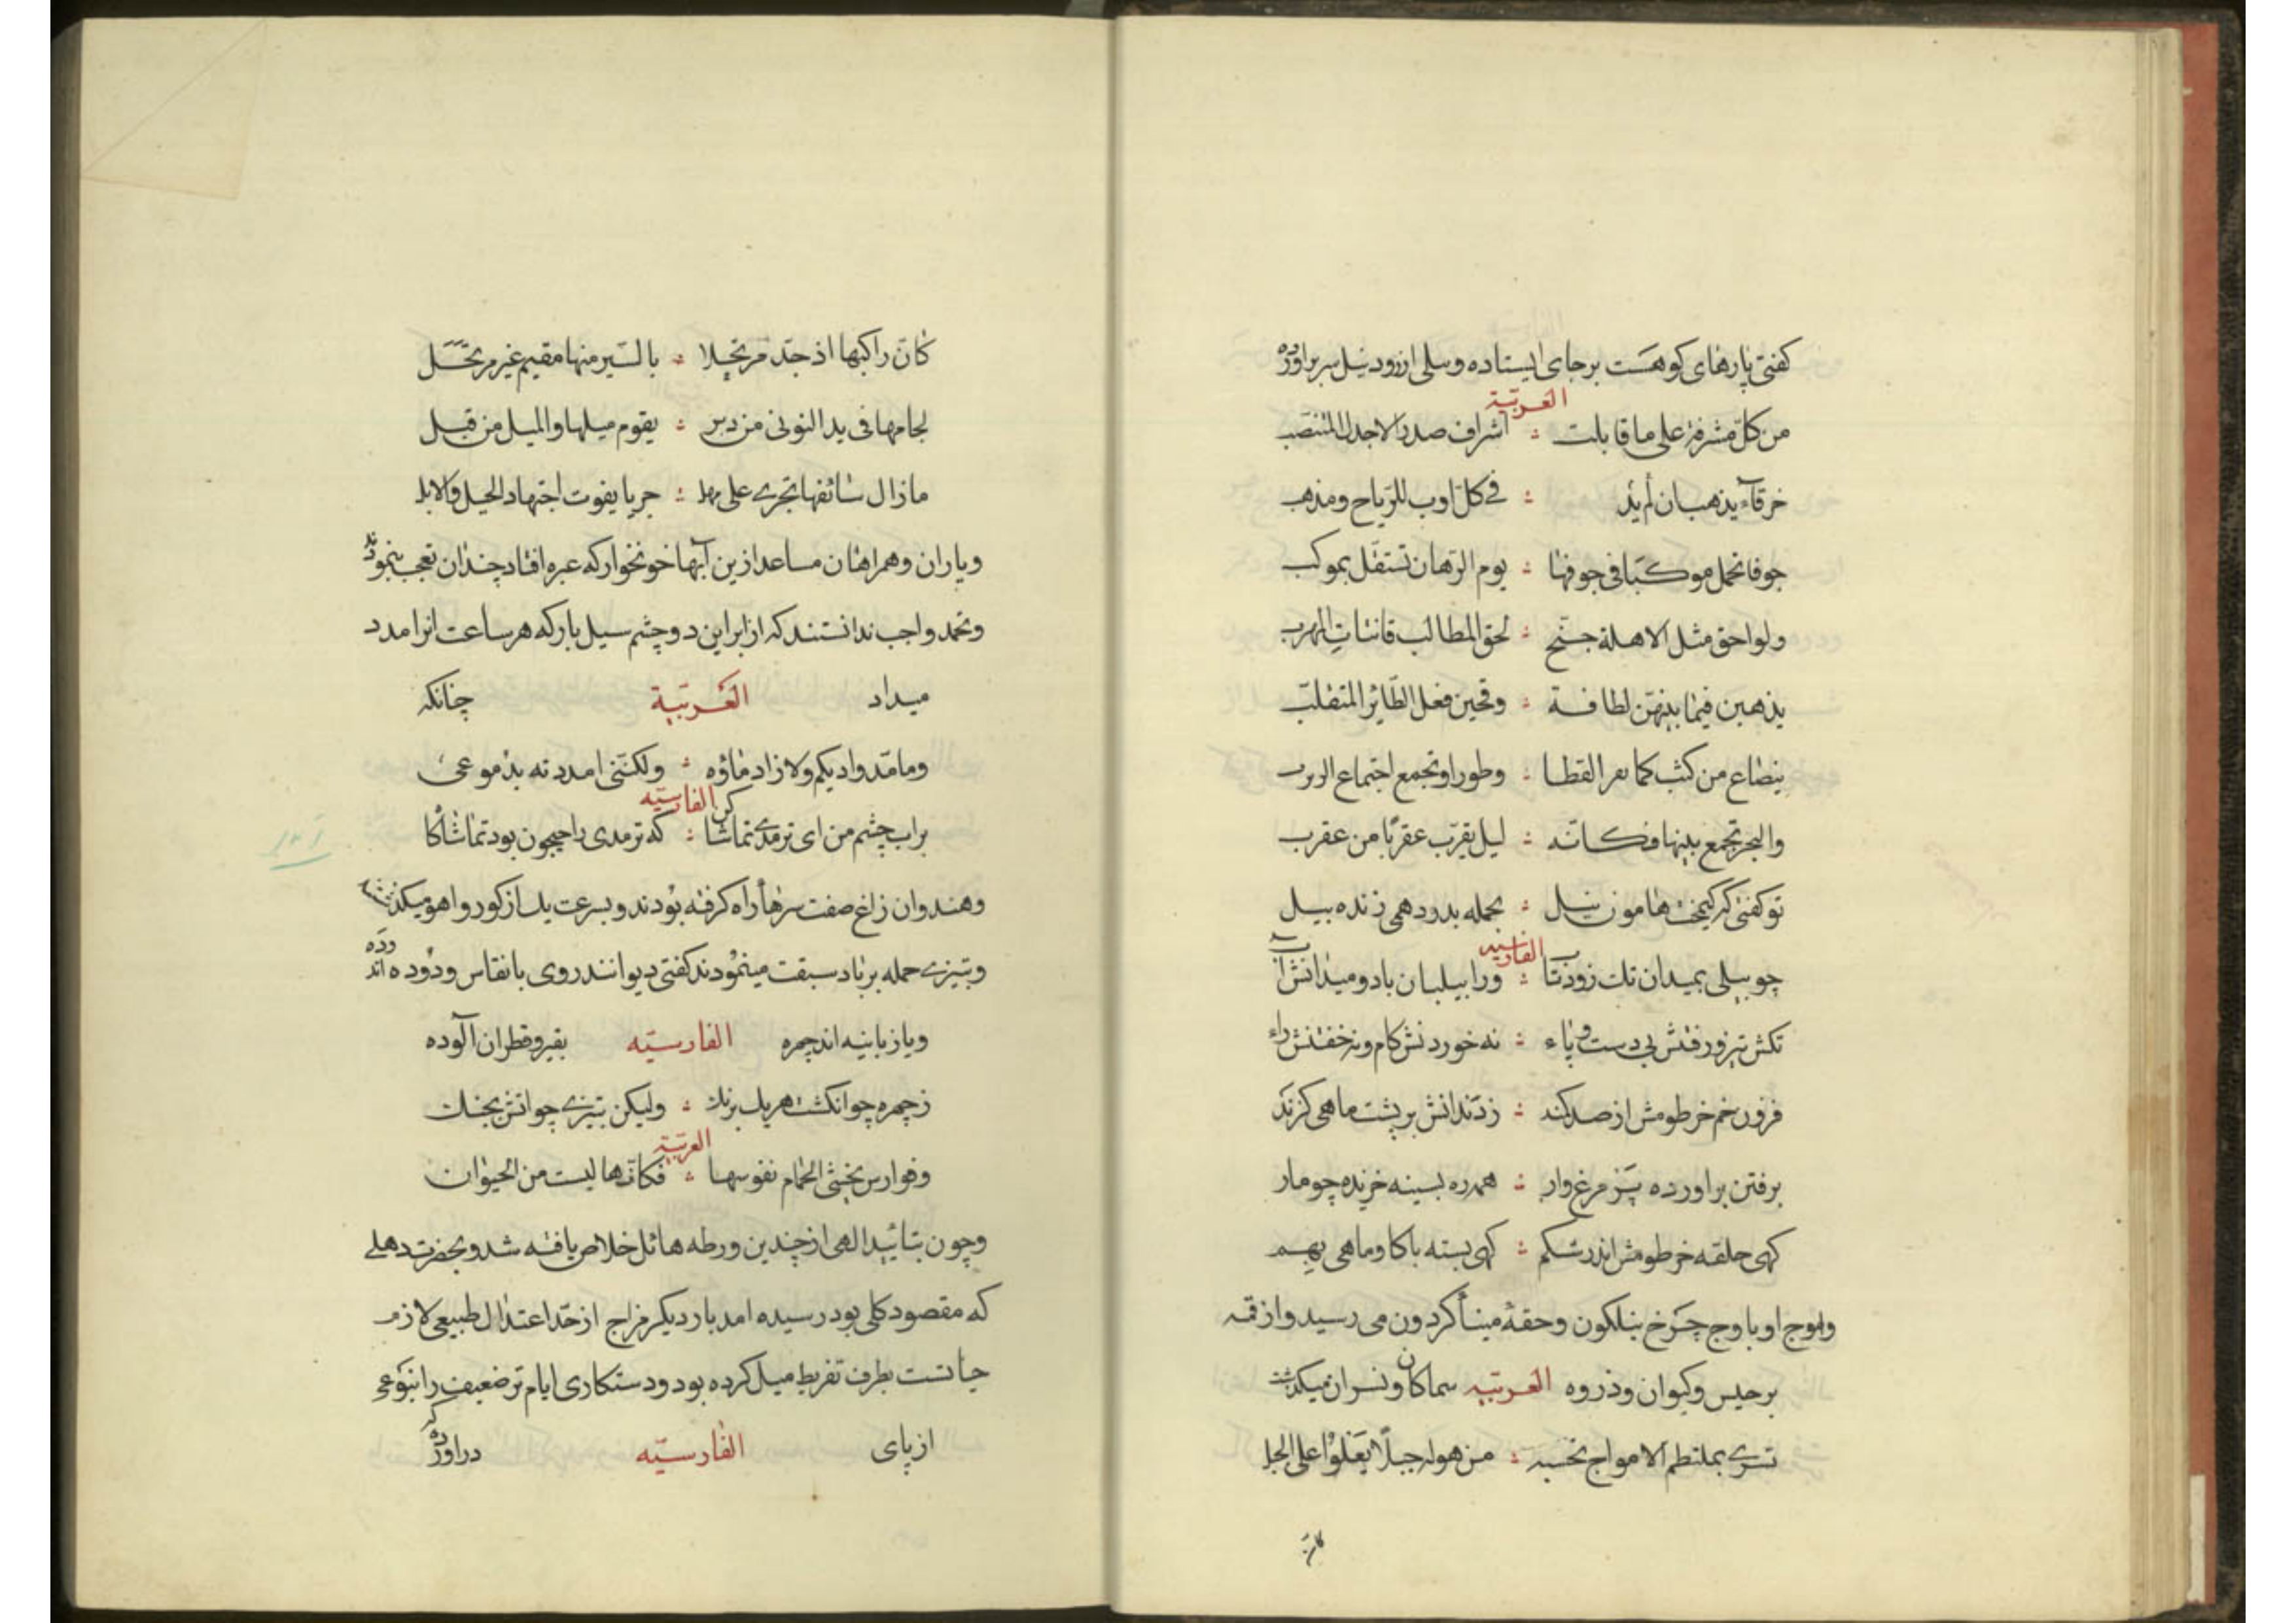 کفتی پارهای کوهست برجای ایستاده وسلی ازرود نیل سربراورده
العربیّة
من کلّ مشرفة علی ما قابلت ؞ اشراف صدر الاجدل المنتصب
خرقآء یذهب ان لم یذ ؞ فی کل اوب للریاح ومذهب
جوفا تحمل موکبا فی جوفها ؞ یوم الرّهان تستقلّ بموکب
ولواحق مثل الاهلة جنّح ؞ لحق المطالب قانتات المهرب
یذهبن فیما بینهنّ لطافة ؞ وتجین فعل الطّایر المتقلّب
ینضاع من کثب کما نفر القطا ؞ وطورا وتجمع اجتماع الربرب
والبحر تجمع بینها فکانّه ؞ لیل یقرّب عقربًا من عقرب
توکفتی که کیمخت هامون نیل ؞ بحمله بدرد همی زنده بیل
الفارسیه
چو بیلی بمیدان تک زودتاب ؞ ورا بیلبان باد ومیدانش آب
تکش تیز ورفتنش بی دست وپاء ؞ نه خوردنش کام ونه خفتنش راء
فزون خم خرطومش از صد کمند ؞ ز دندانش بر پشت ماهی کزند
برفتن براورده پز مرغ وار ؞ همه ره بسینه خزنده چو مار
کهی حلقه خرطومش اندر شکم ؞ کهی بسته باکاو وماهی بهم
واموج او با وج چرخ نیلکون وحقهٔ مینا کردون می رسید واز قمه
برجیس وکیوان وذروه العربیّه سماکان ونسران میکذشت
تری بملتطم الامواج تحسبه ؞ من هوله جبلًا یعلوا علی الجبل
کان
کانّ راکبها اذ جدّ مرتحلا ؞ بالسّیر منها مقیم غیر مرتحل
لجامها فی ید النوتی من دبر ؞ یقوم میلها والمیل من قبل
مازال سائقها تجری علی مهل ؞ جریا یفوت اجتهاد الخیل والابل
ویاران وهمراهان مساعد ازین آبها خونخوار که عبره افتاد چندان تعجب ننمودند
وتحمد واجب ندانستند که از ابر این دو چشم سیل بار که هر ساعت انرا مدد
میداد العربیّة چنانکه
وما مدّ وادیکم ولا زاد ماؤه ؞ ولکنّنی امددته بدموعی
الفارسیّه
بر اب چشم من ای ترمذی تماشا کن ؞ که ترمدی را جیحون بود تماشاکا
وهندوان زاغ صفت سرها راه کرفته بودند وبسرعت یک از کور واهو میکذشتند
وبتیزی حمله برباد سبقت مینمودند کفتی دیوانند روی بانقاس ودوده اندوده
ویا زبانیه اند چهره الفارسیّه بقیر وقطران آلوده
ز چهره چو انکشت هریک برنک ؞ ولیکن بتیزی چو اتش بجنک
العربیّة
وفوارس یخشی الحمام نفوسها ؞ فکانّها لیست من الحیوان
وچون بتائید الهی از چندین ورطه هائل خلاص یافته شد وبحضرت دهلی
که مقصود کلی بود رسیده امد بار دیکر مزاج از حدّ اعتدال طبیعی لازم
جانست بطرف تفریط میل کرده بود ودستکاری ایام تن ضعیف را بنوعی
از پای الفارسیّه دراورده که